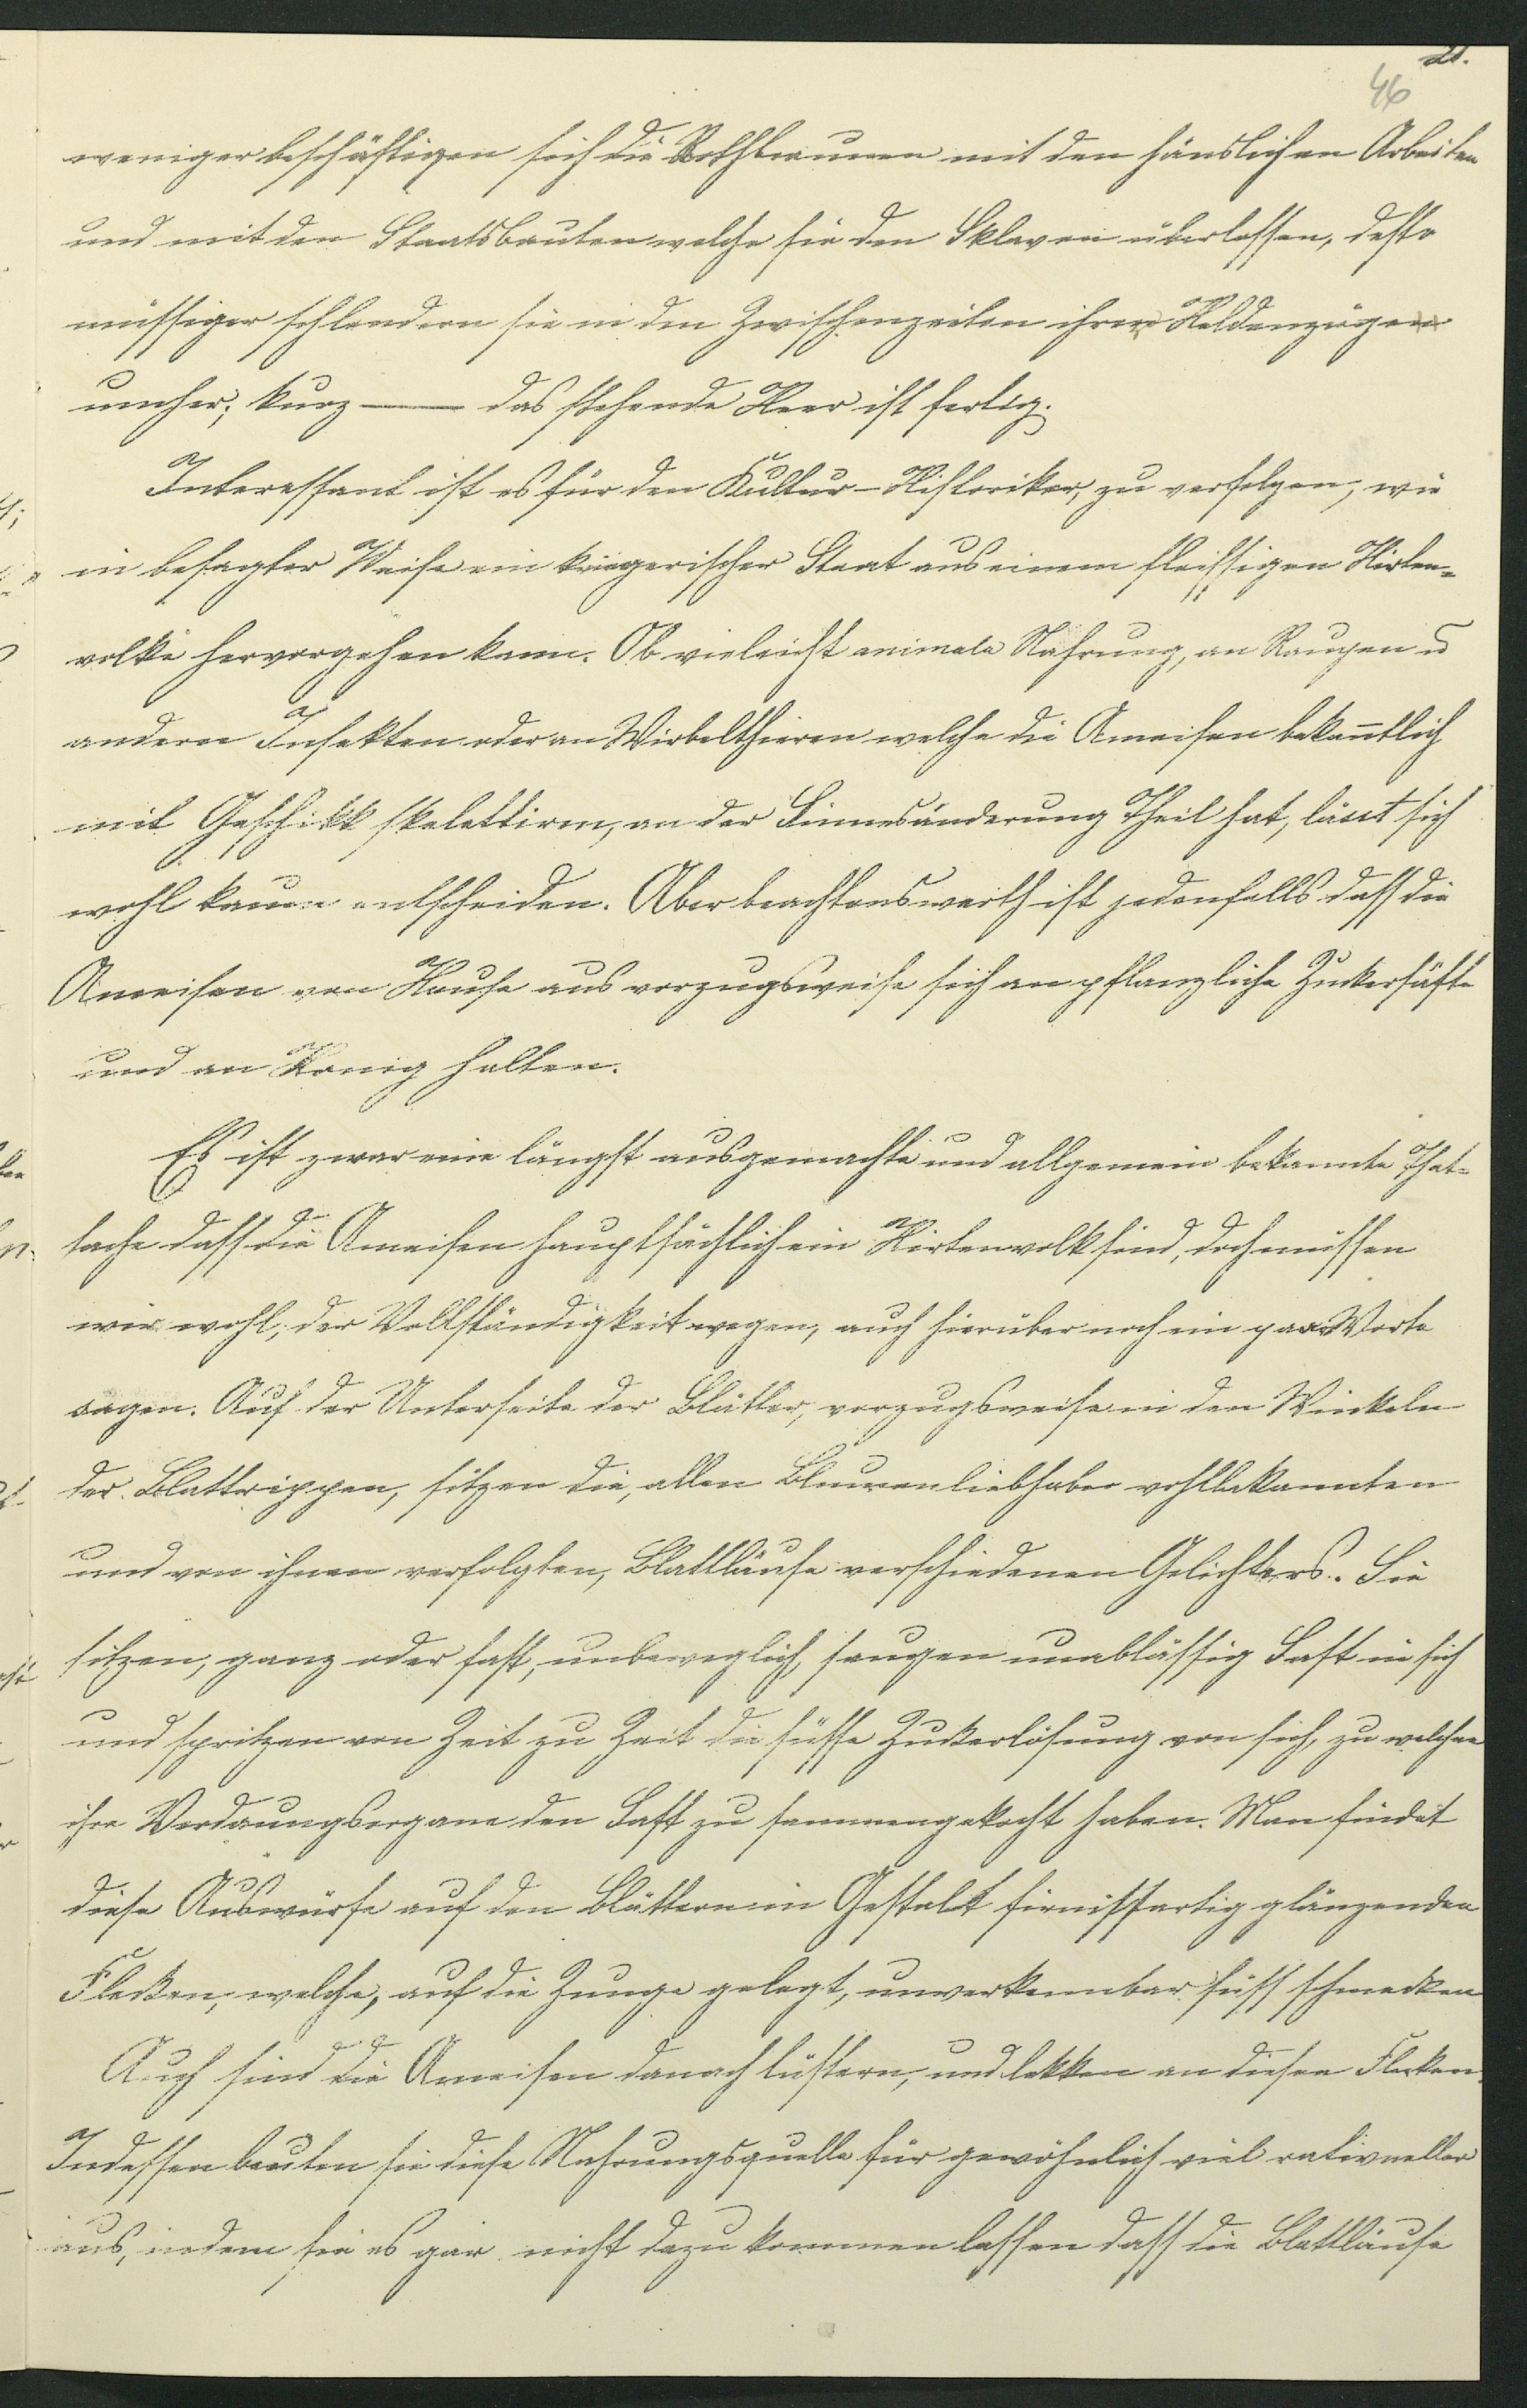 21.
46
weniger beschäftigen sich die Rothbraunen mit den häuslichen Arbeiten
und mit den Staatsbauten welche sie den Sklaven überlassen, desto
müssiger schlendern sie in den Zwischenzeiten ihrer Heldenzügen
umher; kurz — das stehende Heer ist fertig.
Interessant ist es für den Kultur-Historiker, zu verfolgen, wie
in besagter Weise ein kriegerischer Staat aus einem fleissigen Hirten=
volke hervorgehen kann. Ob vieleicht animale Nahrung, an Raupen u
andern Insekten oder an Wirbelthieren welche die Ameisen bekan̄tlich
mit Geschikk skelettiren, an der Sinnesänderung Theil hat, lässt sich
wohl kaum entscheiden. Aber beachtenswerth ist jedenfalls dass die
Ameisen von Hause aus vorzugsweise sich an pflanzliche Zuckersäfte
und an Honig halten.
Es ist zwar eine längst ausgemachte und allgemein bekannte That=
sache dass die Ameisen hauptsächlich ein Hirtenvolk sind, doch müssen
wir wohl, der Vollständigkeit wegen, auch hierüber noch ein paar Worte
sagen. Auf der Unterseite der Blätter, vorzugsweise in den Winkeln
der Blattrippen, sitzen die, allen Blumenliebhaber wohlbekannten
und von ihnen verfolgten, Blattläuse verschiedenen Gelichters. Sie
sitzen, ganz oder fast, unbeweglich, saugen unablässig Saft in sich
und spritzen von Zeit zu Zeit die süsse Zuckerlösung von sich, zu welcher
ihre Verdauungsorgane den Saft zu sammengekocht haben. Man findet
diese Auswürfe auf den Blättern in Gestalt firnissartig glänzenden
Flecken, welche, auf die Zunge gelegt, unverkennbar süss schmecken
Auch sind die Ameisen danach lüstern, und lekken an diesen Flecken.
Indessen beuten sie diese Nahrungsquelle für gewöhnlich viel rationeller
aus, indem sie es gar nicht dazu kommen lassen dass die Blattläuse